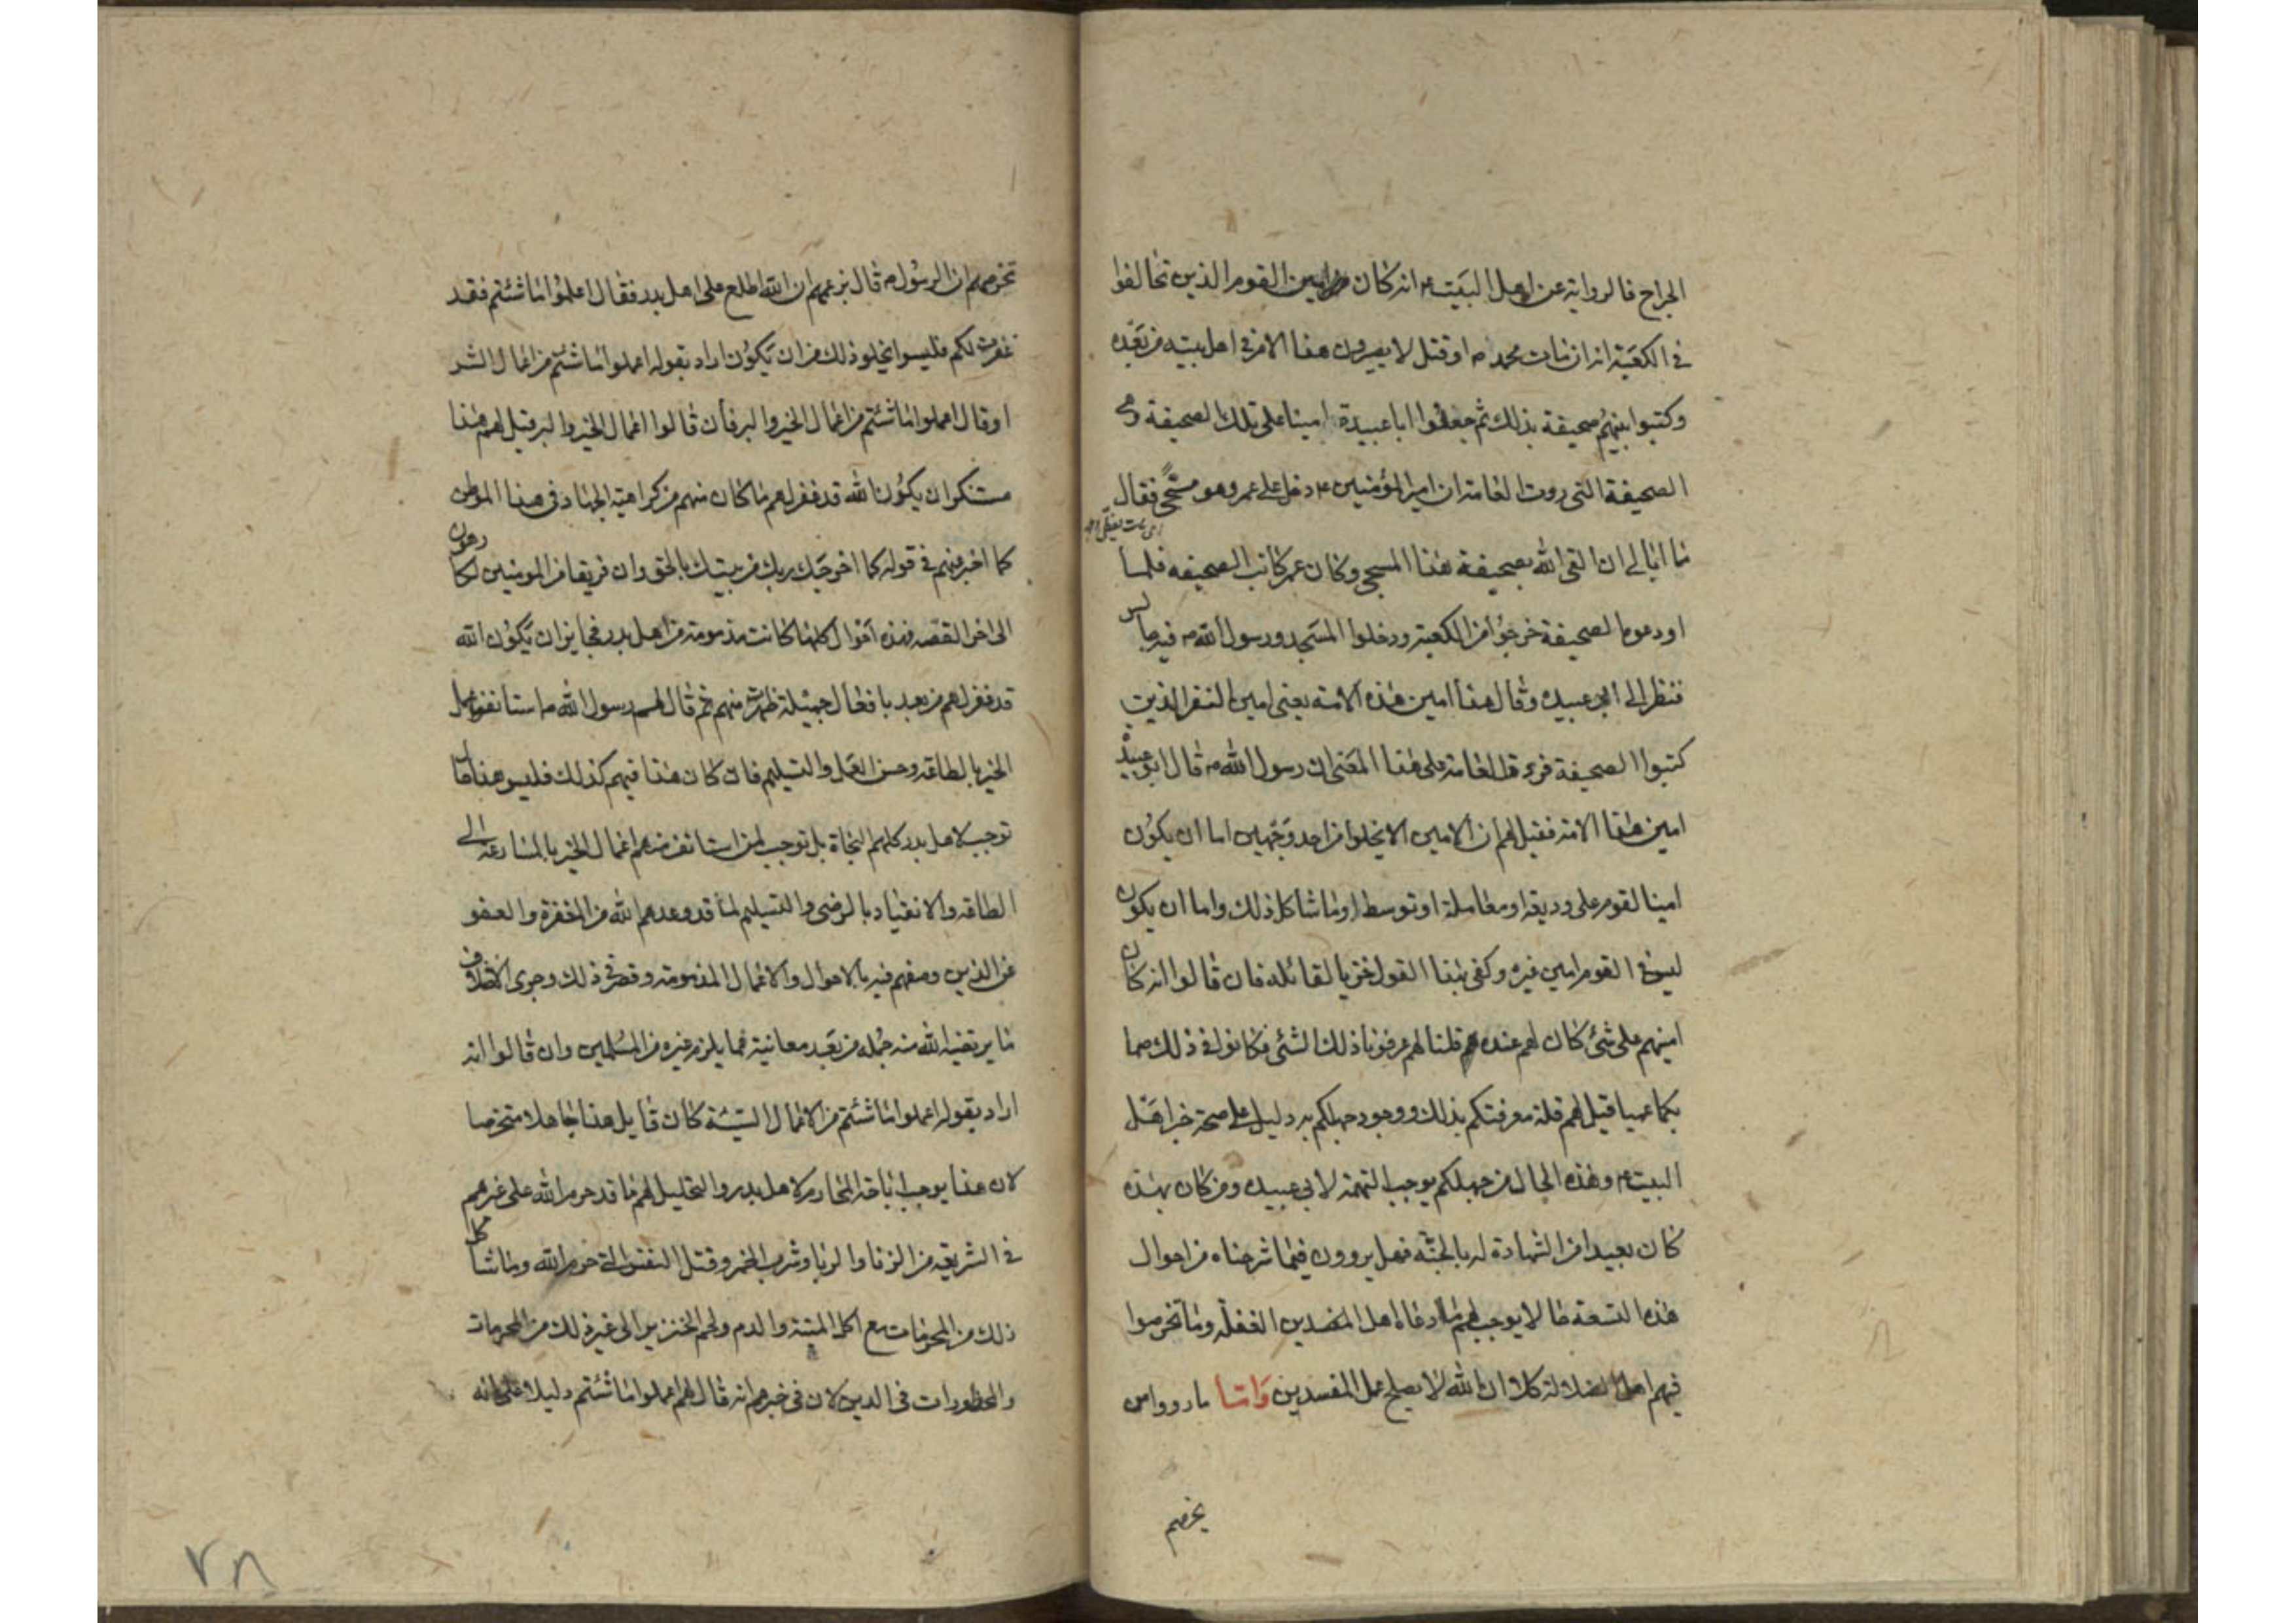 الجراح فالرواية عن اهل البيت ۴ انه كان امين القوم الذين تحالفوا
في الكعبة انه ان مات محمد ص او قتل لا يصيرون هذا الامر في اهل بيته من بعده
وكتبوا بينهم صحيفة بذلك ثم جعلوا ابا عبيدة امينا على تلك الصحيفة وهي
الصحيفة التي روت العامة ان امير المؤمنين ۴ دخل على عمر وهو مسجّى فقال
ما ابالي ان القى الله بصحيفة هذا المسجى وكان عمر كاتب الصحيفه فلما
اودعوا الصحيفة خرجوا من الكعبة ودخلوا المسجد ورسول الله ص فيه جالس
فنظر الى ابي عبيده وقال هذا امين هذه الامة يعني امين النفر الذين
كتبوا الصحيفة فروى قل العامة على هذا المعنى ان رسول الله ص قال ابو عبيدة
امين هذا الامة فقيل لهم ان الامين لا يخلوا من احد وجهين اما ان يكون
امينا لقوم على وديعة او معاملة او توسط او ما شاكل ذلك واما ان يكون
ليس في القوم امين غيره وكفى بهذا القول خزيا لقائله فان قالوا انه كان
امينهم على شئ كان لهم عنده قلنا لهم عرفونا ذلك الشئ فكانوا في ذلك صما
بكما عميا قيل لهم قلة معرفتكم بذلك ووجود جهلكم به دليل على صحة خبر اهل
البيت ۴ وهذه الحال من جهلكم يوجب التهمة لابي عبيده ومن كان بهذه
كان بعيدا من الشهادة له بالجنّة فهل يروون فيما شرحناه من احوال
هذه التسعة ما لا يوجب لهم ما ادعاه اهل المفسدين الغفلة وما تخرصوا
فيهم اهل الضلالة كلا ان الله لا يصلح عمل المفسدين وَامّا ما رووا من
تخرصهم
تخرصهم ان الرسول ص قال بزعمهم ان الله اطلع على اهل بدر فقال اعلموا ما شئتم فقد
غفرت لكم فليس يخلو ذلك من ان يكون اراد بقوله اعملوا ما شئتم من اعمال الشر
او قال اعملوا ما شئتم من اعمال الخير والبر فأن قالوا اعمال الخير والبر قيل لهم هذا
مستنكر ان يكون الله قد غفر لهم ما كان منهم من كراهية الجهاد في هذا الموطن
كما اخبر عنهم في قوله كما اخرجك ربك من بيتك بالحق وان فريقا من المومنين لكارهون
الى اخر القصّه فهذه احوال كلها كانت مذمومة من اهل بدر فجايز ان يكون الله
قد غفر لهم من بعد بافعال جميلة ظهرت منهم ثم قال لهم رسول الله ص استانفوا عمل
الخير بالطاقه وحسن العمل والتسليم فان كان هذا فيهم كذلك فليس هذا ما
توجب لاهل بدر كلهم النجاة بل توجب لمن استانف منهم اعمال الخير بالمسارعة الى
الطاقه والانقياد بالرضى والتسليم لما قد وعدهم الله من المغفرة والعفو
عن الذين وصفهم فيه بالاحوال والاعمال المذمومه وقصر في ذلك وجرى الاختلاف
ما يرتضيه الله منه جمله من بعد معانيه مما يلزم غيره من المسلمين وان قالوا انه
اراد بقوله اعملوا ما شئتم من الاعمال السيّئة كان قايل هذا جاهلا متخرصا
لان هذا يوجب اباحة المحارم لاهل بدر والتحليل لهم ما قد حرم الله على غيرهم
في الشريعه من الزنا والربا وشرب الخمر وقتل النفس التي حرم الله وما شاكل
ذلك من المحرمات مع اكل الميتة والدم ولحم الخنزير الى غير ذلك من المحرمات
والمحظورات في الدين لان في خبرهم انه قال لهم اعملوا ما شئتم دليلا على انه
۲۸